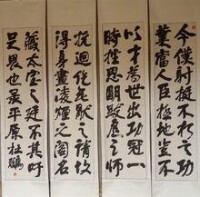 今僕射挺不朽之功
業當人臣極地豈不
以才為世出功冠一
時挫思明跋扈之師
抗迴紇無厭之請故
得身畫凌煙之閣名
藏太室之廷不其吁
足畏也 平原杜鵬